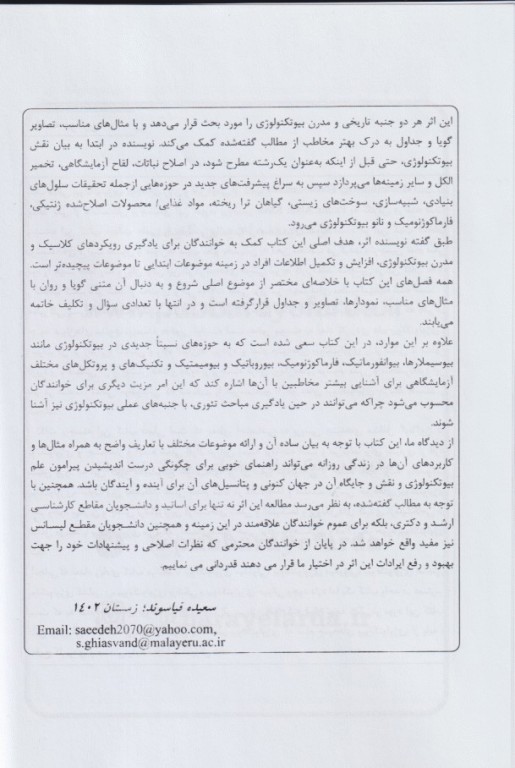 این اثر هر دو جنبه تاریخی و مدرن بیوتکنولوژی را مورد بحث قرار می‌دهد و با مثال‌های مناسب، تصاویر
گویا و جداول به درک بهتر مخاطب از مطالب گفته‌شده کمک می‌کند. نویسنده در ابتدا به بیان نقش
بیوتکنولوژی، حتی قبل از اینکه به‌عنوان یک‌رشته مطرح شود، در اصلاح نباتات، لقاح آزمایشگاهی، تخمیر
الکل و سایر زمینه‌ها می‌پردازد سپس به سراغ پیشرفت‌های جدید در حوزه‌هایی ازجمله تحقیقات سلول‌های
بنیادی، شبیه‌سازی، سوخت‌های زیستی، گیاهان ترا ریخته، مواد غذایی/ محصولات اصلاح‌شده ژنتیکی،
فارماکوژنومیک و نانو بیوتکنولوژی می‌رود.
طبق گفته نویسنده اثر، هدف اصلی این کتاب کمک به خوانندگان برای یادگیری رویکردهای کلاسیک و
مدرن بیوتکنولوژی، افزایش و تکمیل اطلاعات افراد در زمینه موضوعات ابتدایی تا موضوعات پیچیده‌تر است.
همه فصل‌های این کتاب با خلاصه‌ای مختصر از موضوع اصلی شروع و به دنبال آن متنی گویا و روان با
مثال‌های مناسب، نمودارها، تصاویر و جداول قرارگرفته است و در انتها با تعدادی سؤال و تکلیف خاتمه
می‌یابند.
علاوه بر این موارد، در این کتاب سعی شده است که به حوزه‌های نسبتاً جدیدی در بیوتکنولوژی مانند
بیوسیملارها، بیوانفورماتیک، فارماکوژنومیک، بیوروباتیک و بیومیمتیک و تکنیک‌های و پروتکل‌های مختلف
آزمایشگاهی برای آشنایی بیشتر مخاطبین با آن‌ها اشاره کند که این امر مزیت دیگری برای خوانندگان
محسوب می‌شود چراکه می‌توانند در حین یادگیری مباحث تئوری، با جنبه‌های عملی بیوتکنولوژی نیز آشنا
شوند.
از دیدگاه ما، این کتاب با توجه به بیان ساده آن و ارائه موضوعات مختلف با تعاریف واضح به همراه مثال‌ها و
کاربردهای آن‌ها در زندگی روزانه می‌تواند راهنمای خوبی برای چگونگی درست اندیشیدن پیرامون علم
بیوتکنولوژی و نقش و جایگاه آن در جهان کنونی و پتانسیل‌های آن برای آینده و آیندگان باشد. همچنین با
توجه به مطالب گفته‌شده، به نظر می‌رسد مطالعه این اثر نه تنها برای اساتید و دانشجویان مقاطع کارشناسی
ارشد و دکتری، بلکه برای عموم خوانندگان علاقه‌مند در این زمینه و همچنین دانشجویان مقطع لیسانس
نیز مفید واقع خواهد شد. در پایان از خوانندگان محترمی که نظرات اصلاحی و پیشنهادات خود را جهت
بهبود و رفع ایرادات این اثر در اختیار ما قرار می دهند قدردانی می نماییم.
سعیده غیاسوند؛ زمستان ۱۴۰۲
Email: saeedeh2070@yahoo.com,
s.ghiasvand@malayeru.ac.ir